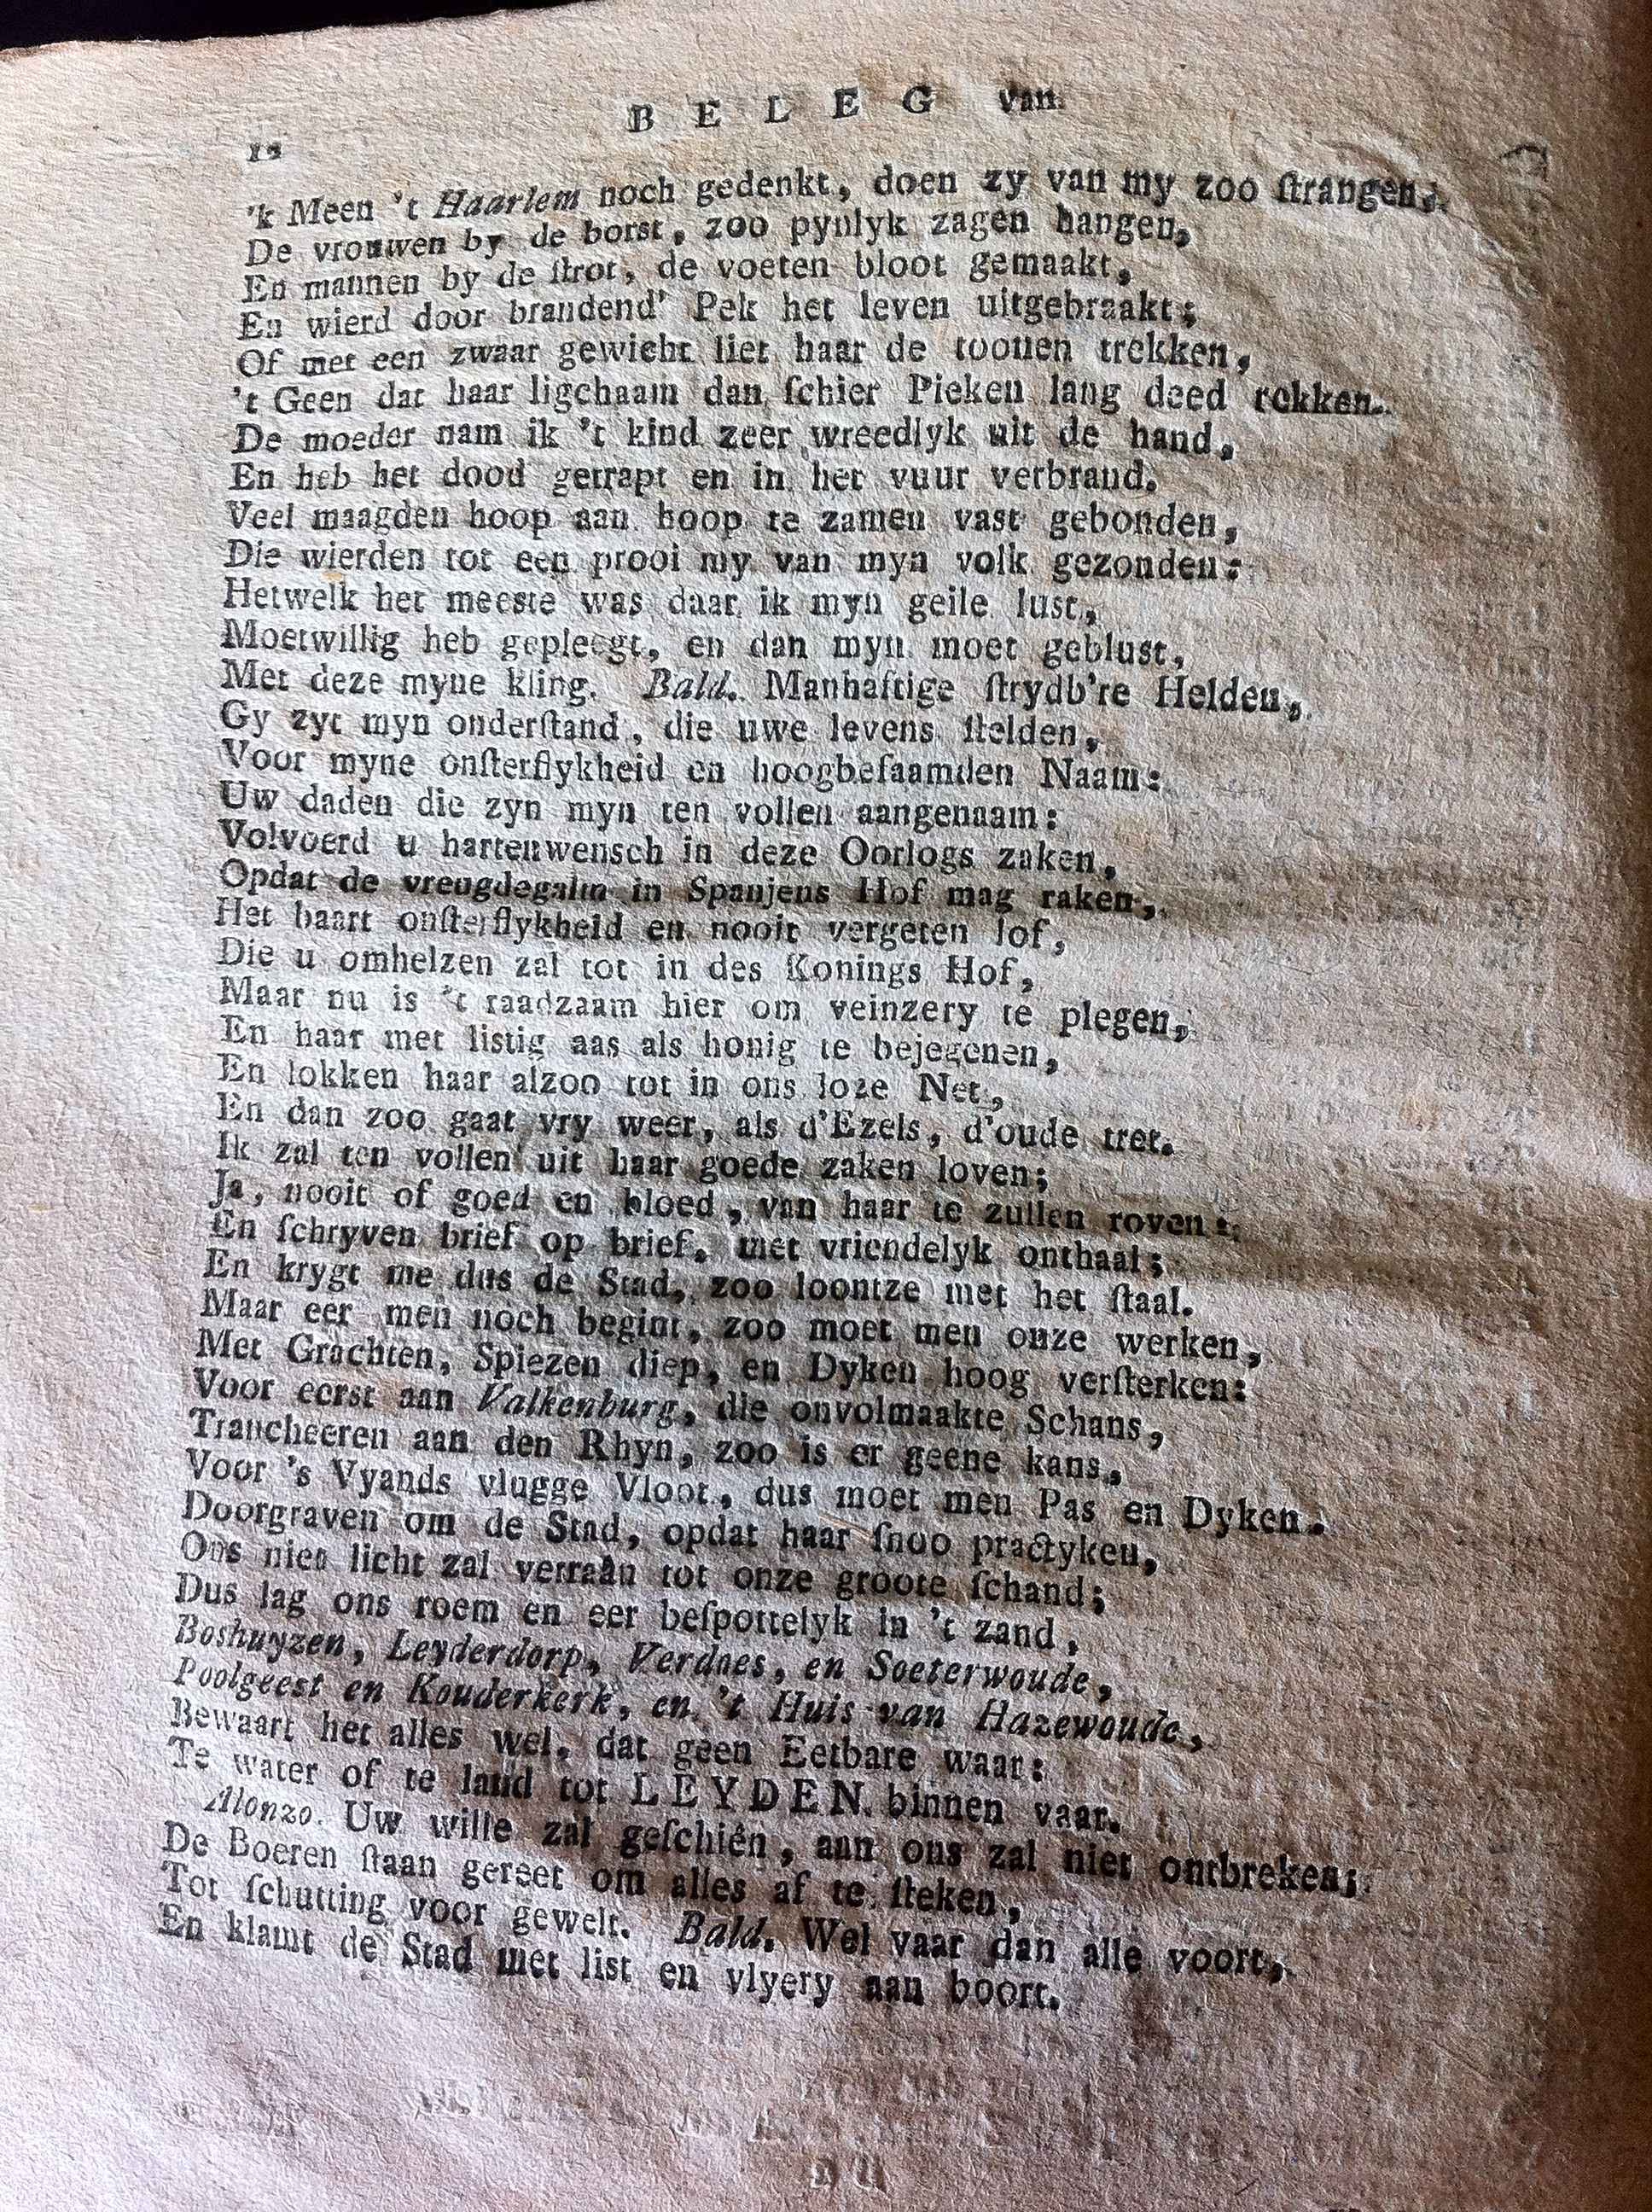 BELEG van
12
'k Meen 't Haarlem noch gedenkt, doen zy van my zoo ſtrangen,
De vrouwen by de borst, zoo pynlyk zagen hangen,
En mannen by de ſtrot, de voeten bloot gemaakt,
En wierd door brandend' Pek het leven uitgebraakt;
Of met een zwaar gewicht liet haar de toonen trekken,
't Geen dat haar ligchaam dan ſchier Pieken lang deed rekken.
De moeder nam ik 't kind zeer wreedlyk uit de hand,
En heb het dood getrapt en in het vuur verbrand.
Veel maagden hoop aan hoop te zamen vast gebonden,
Die wierden tot een prooi my van myn volk gezonden:
Hetwelk het meeste was daar ik myn geile lust,
Moetwillig heb gepleegt, en dan myn moet geblust,
Met deze myne kling. Bald. Manhaftige ſtrydb're Helden,
Gy zyt myn onderſtand, die uwe levens ſtelden,
Voor myne onſterflykheid en hoogbefaamden Naam:
Uw daden die zyn myn ten vollen aangenaam:
Volvoerd u hartenwensch in deze Oorlogs zaken,
Opdat de vreugdegalm in Spanjens Hof mag raken,
Het baart onſterflykheid en nooit vergeten lof,
Die u omhelzen zal tot in des Konings Hof,
Maar nu is 't raadzaam hier om veinzery te plegen,
En haar met listig aas als honig te bejegenen,
En lokken haar alzoo tot in ons loze Net,
En dan zoo gaat vry weer, als d'Ezels, d'oude tret.
Ik zal ten vollen uit haar goede zaken loven;
Ja, nooit of goed en bloed, van haar te zullen roven:
En ſchryven brief op brief, met vriendelyk onthaal;
En krygt me dus de Stad, zoo loontze met het ſtaal.
Maar eer men noch begint, zoo moet men onze werken,
Met Grachten, Spiezen diep, en Dyken hoog verſterken:
Voor eerst aan Valkenburg, die onvolmaakte Schans,
Trancheeren aan den Rhyn, zoo is er geene kans,
Voor 's Vyands vlugge Vloot, dus moet men Pas en Dyken.
Doorgraven om de Stad, opdat haar ſnoo practyken,
Ons niet licht zal verraân tot onze groote ſchand;
Dus lag ons roem en eer beſpottelyk in 't zand,
Boshuyzen, Leyderdorp, Verdoes, en Soeterwoude,
Poolgeest en Kouderkerk, en 't Huis van Hazewoude,
Bewaart het alles wel, dat geen Eetbare waar:
Te water of te land tot LEYDEN binnen vaar.
Alonzo. Uw wille zal geſchiên, aan ons zal niet ontbreken;
De Boeren ſtaan gereet om alles af te ſteken,
Tot ſchutting voor gewelt. Bald. Wel vaar dan alle voort,
En klamt de Stad met list en vlyery aan boort.